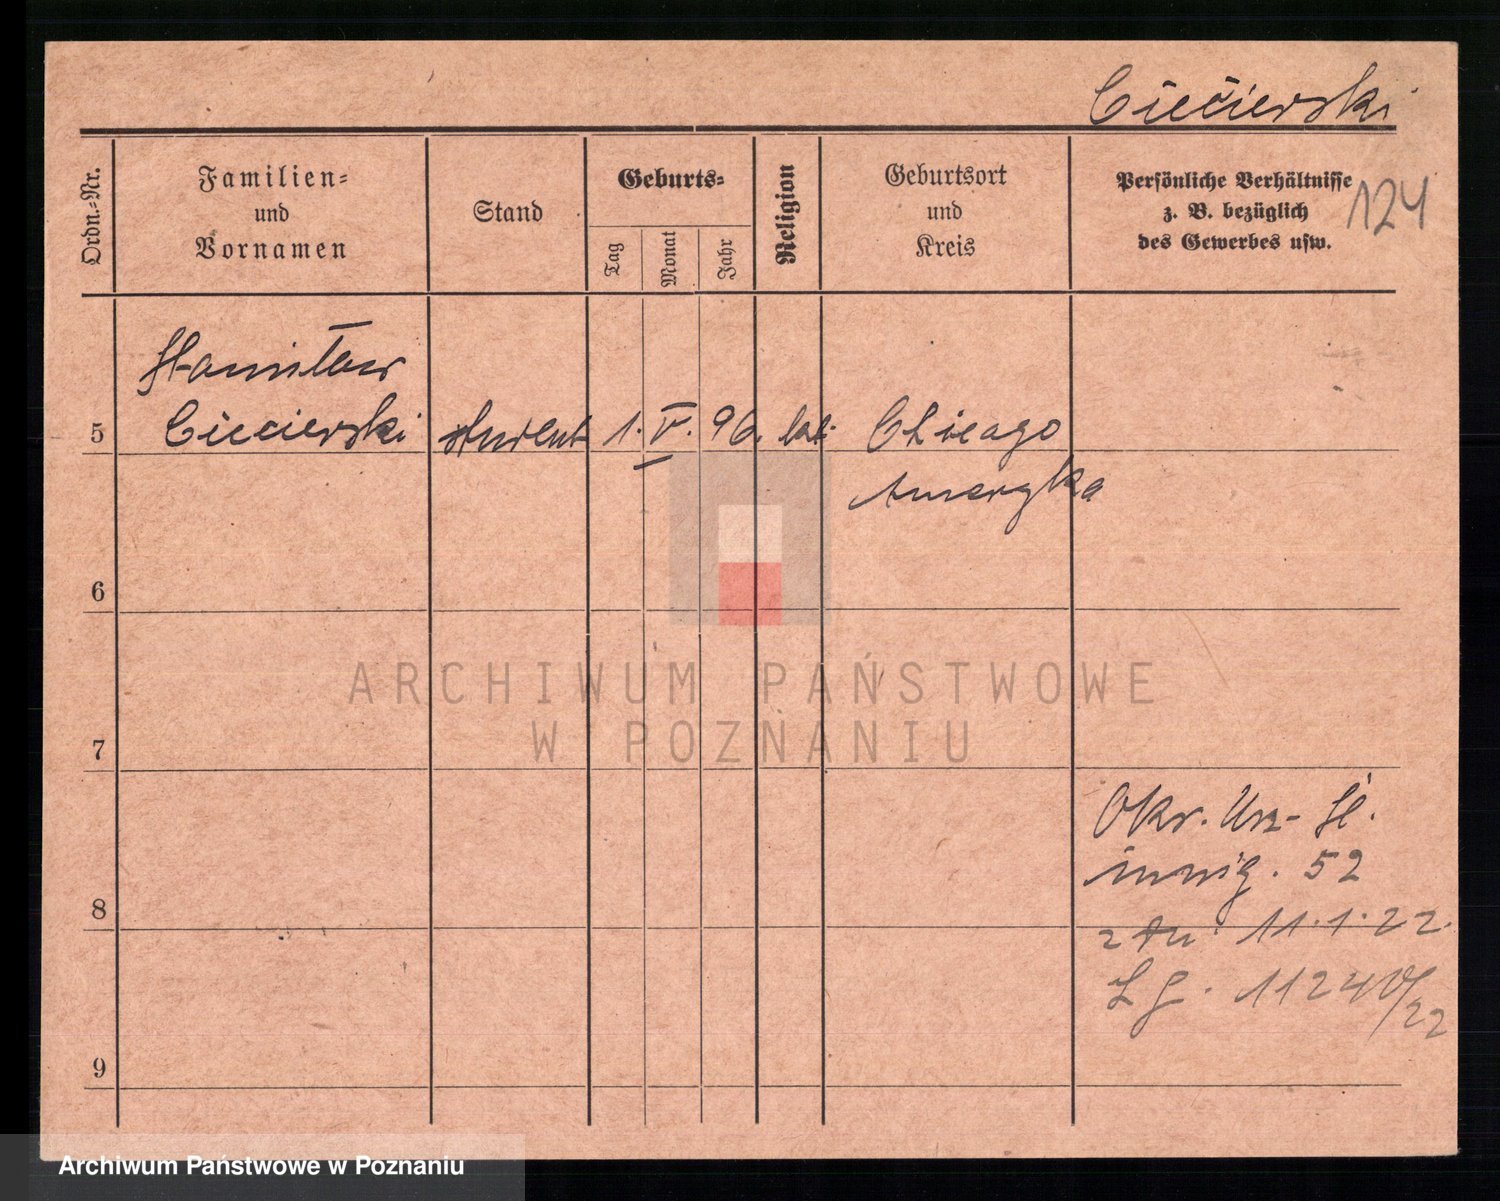 Ciecierski
124
Ordn.-Nr.
Familien-
und
Vornamen
Stand
Geburts-
Tag
Monat
Jahr
Religion
Geburtsort
und
Kreis
Persönliche Verhältnisse
z. B. bezüglich
des Gewerbes usw.
Stanisław
5 Ciecierski student 1. V. 96. kat. Chicago
Ameryka
6
ARCHIWUM PAŃSTWOWE
W POZNANIU
7
Okr. Urz.
52
8
11.1.22.
9
Archiwum Państwowe w Poznaniu